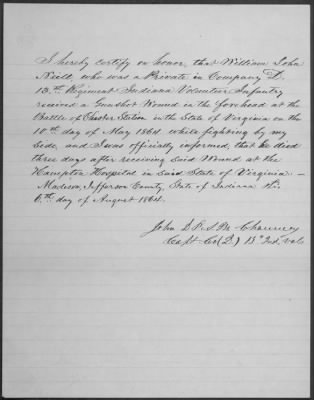 I hereby certify on honor, that William John
Neill, who was a Private in Company D.
13.th Regiment Indiana Volunteer Infantry
received a Gunshot Wound in the forehead at the
Battle of Chester Station in the State of Virginia on the
10th day of May 1864 while fighting by my
side and I was officially informed, that he died
three days after receiving said Wound at the
Hampton Hospital in said State of Virginia. –
Madison, Jefferson County, State of Indiana this
6.th day of August 1864.
John D. P. Chauncy
Capt. Co (D.) 13th Ind. Vols